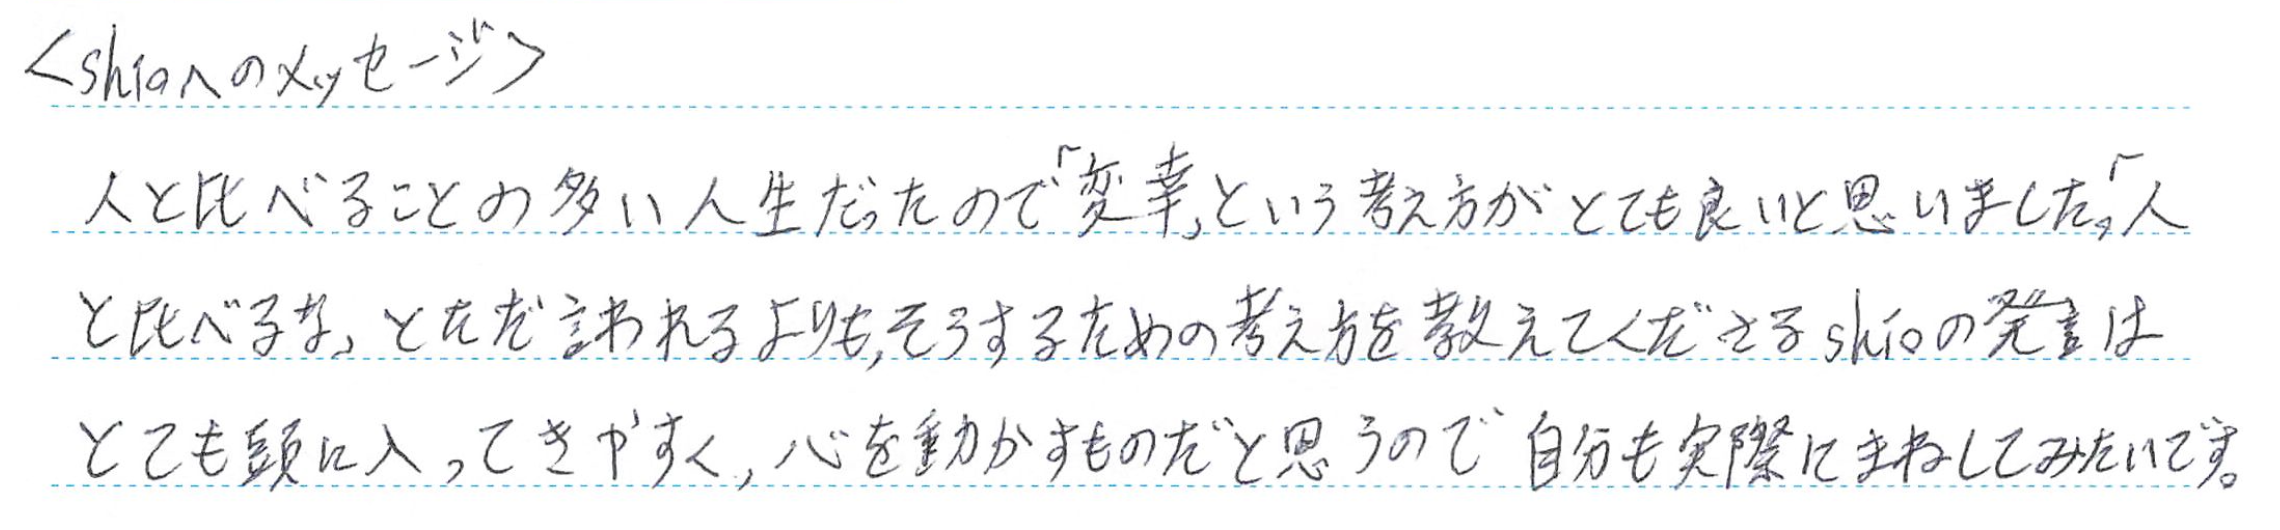 <shioへのメッセージ>
人と比べることの多い人生だったので「変幸」という考え方がとても良いと思いました。「人
と比べるな」とただ言われるよりも,そうするための考え方を教えてくださるshioの発言は
とても頭に入ってきやすく,心を動かすものだと思うので自分も実際にまねしてみたいです。